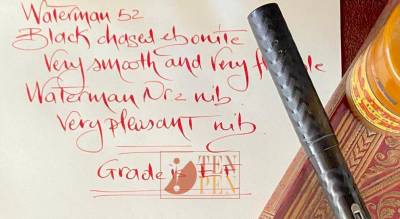 Waterman 52
Black chased ebonite
Very smooth and Very
Waterman Nr 2 nib.
Very pleasant nib.
TEN
Grade is EF
PEN